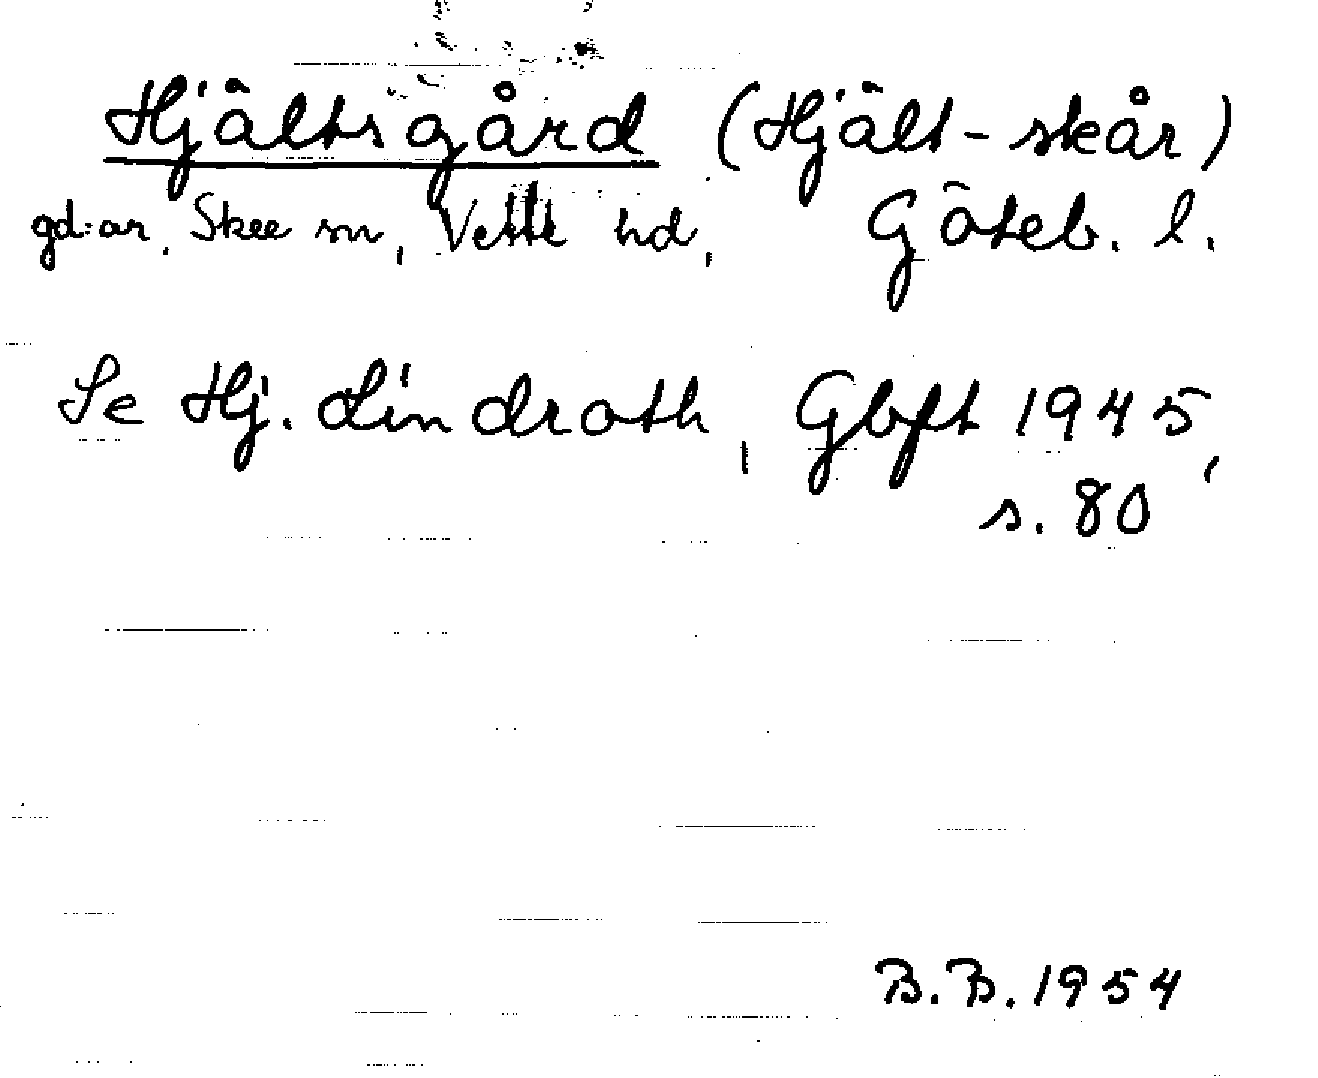 Hjältsgård (Hjält-skår)
gd:ar, Skee sn, Vette hd, Göteb. l.
Se Hj. Lindroth, Gbft 1945,
s. 80
B.B. 1954